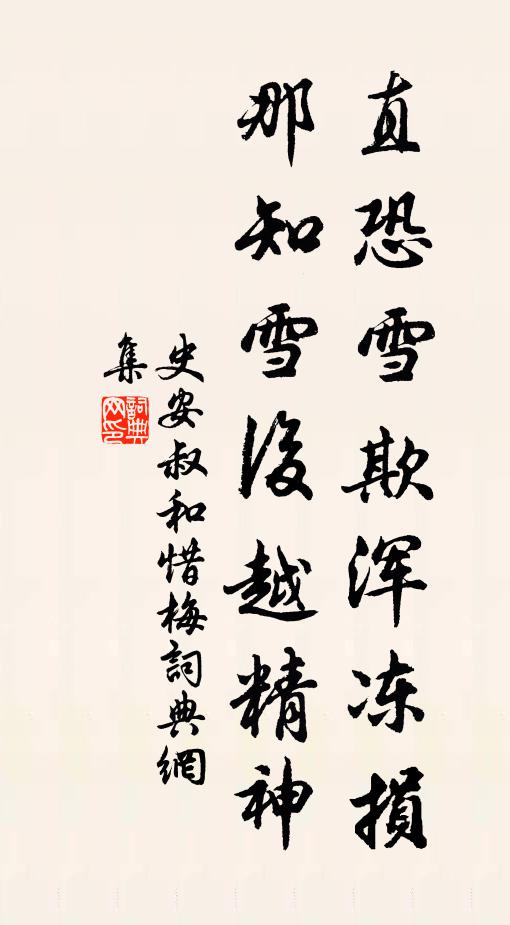 直恐雪欺浑冻损
那知雪後越精神
史安叔和惜梅詞典網
集
詞典
网印